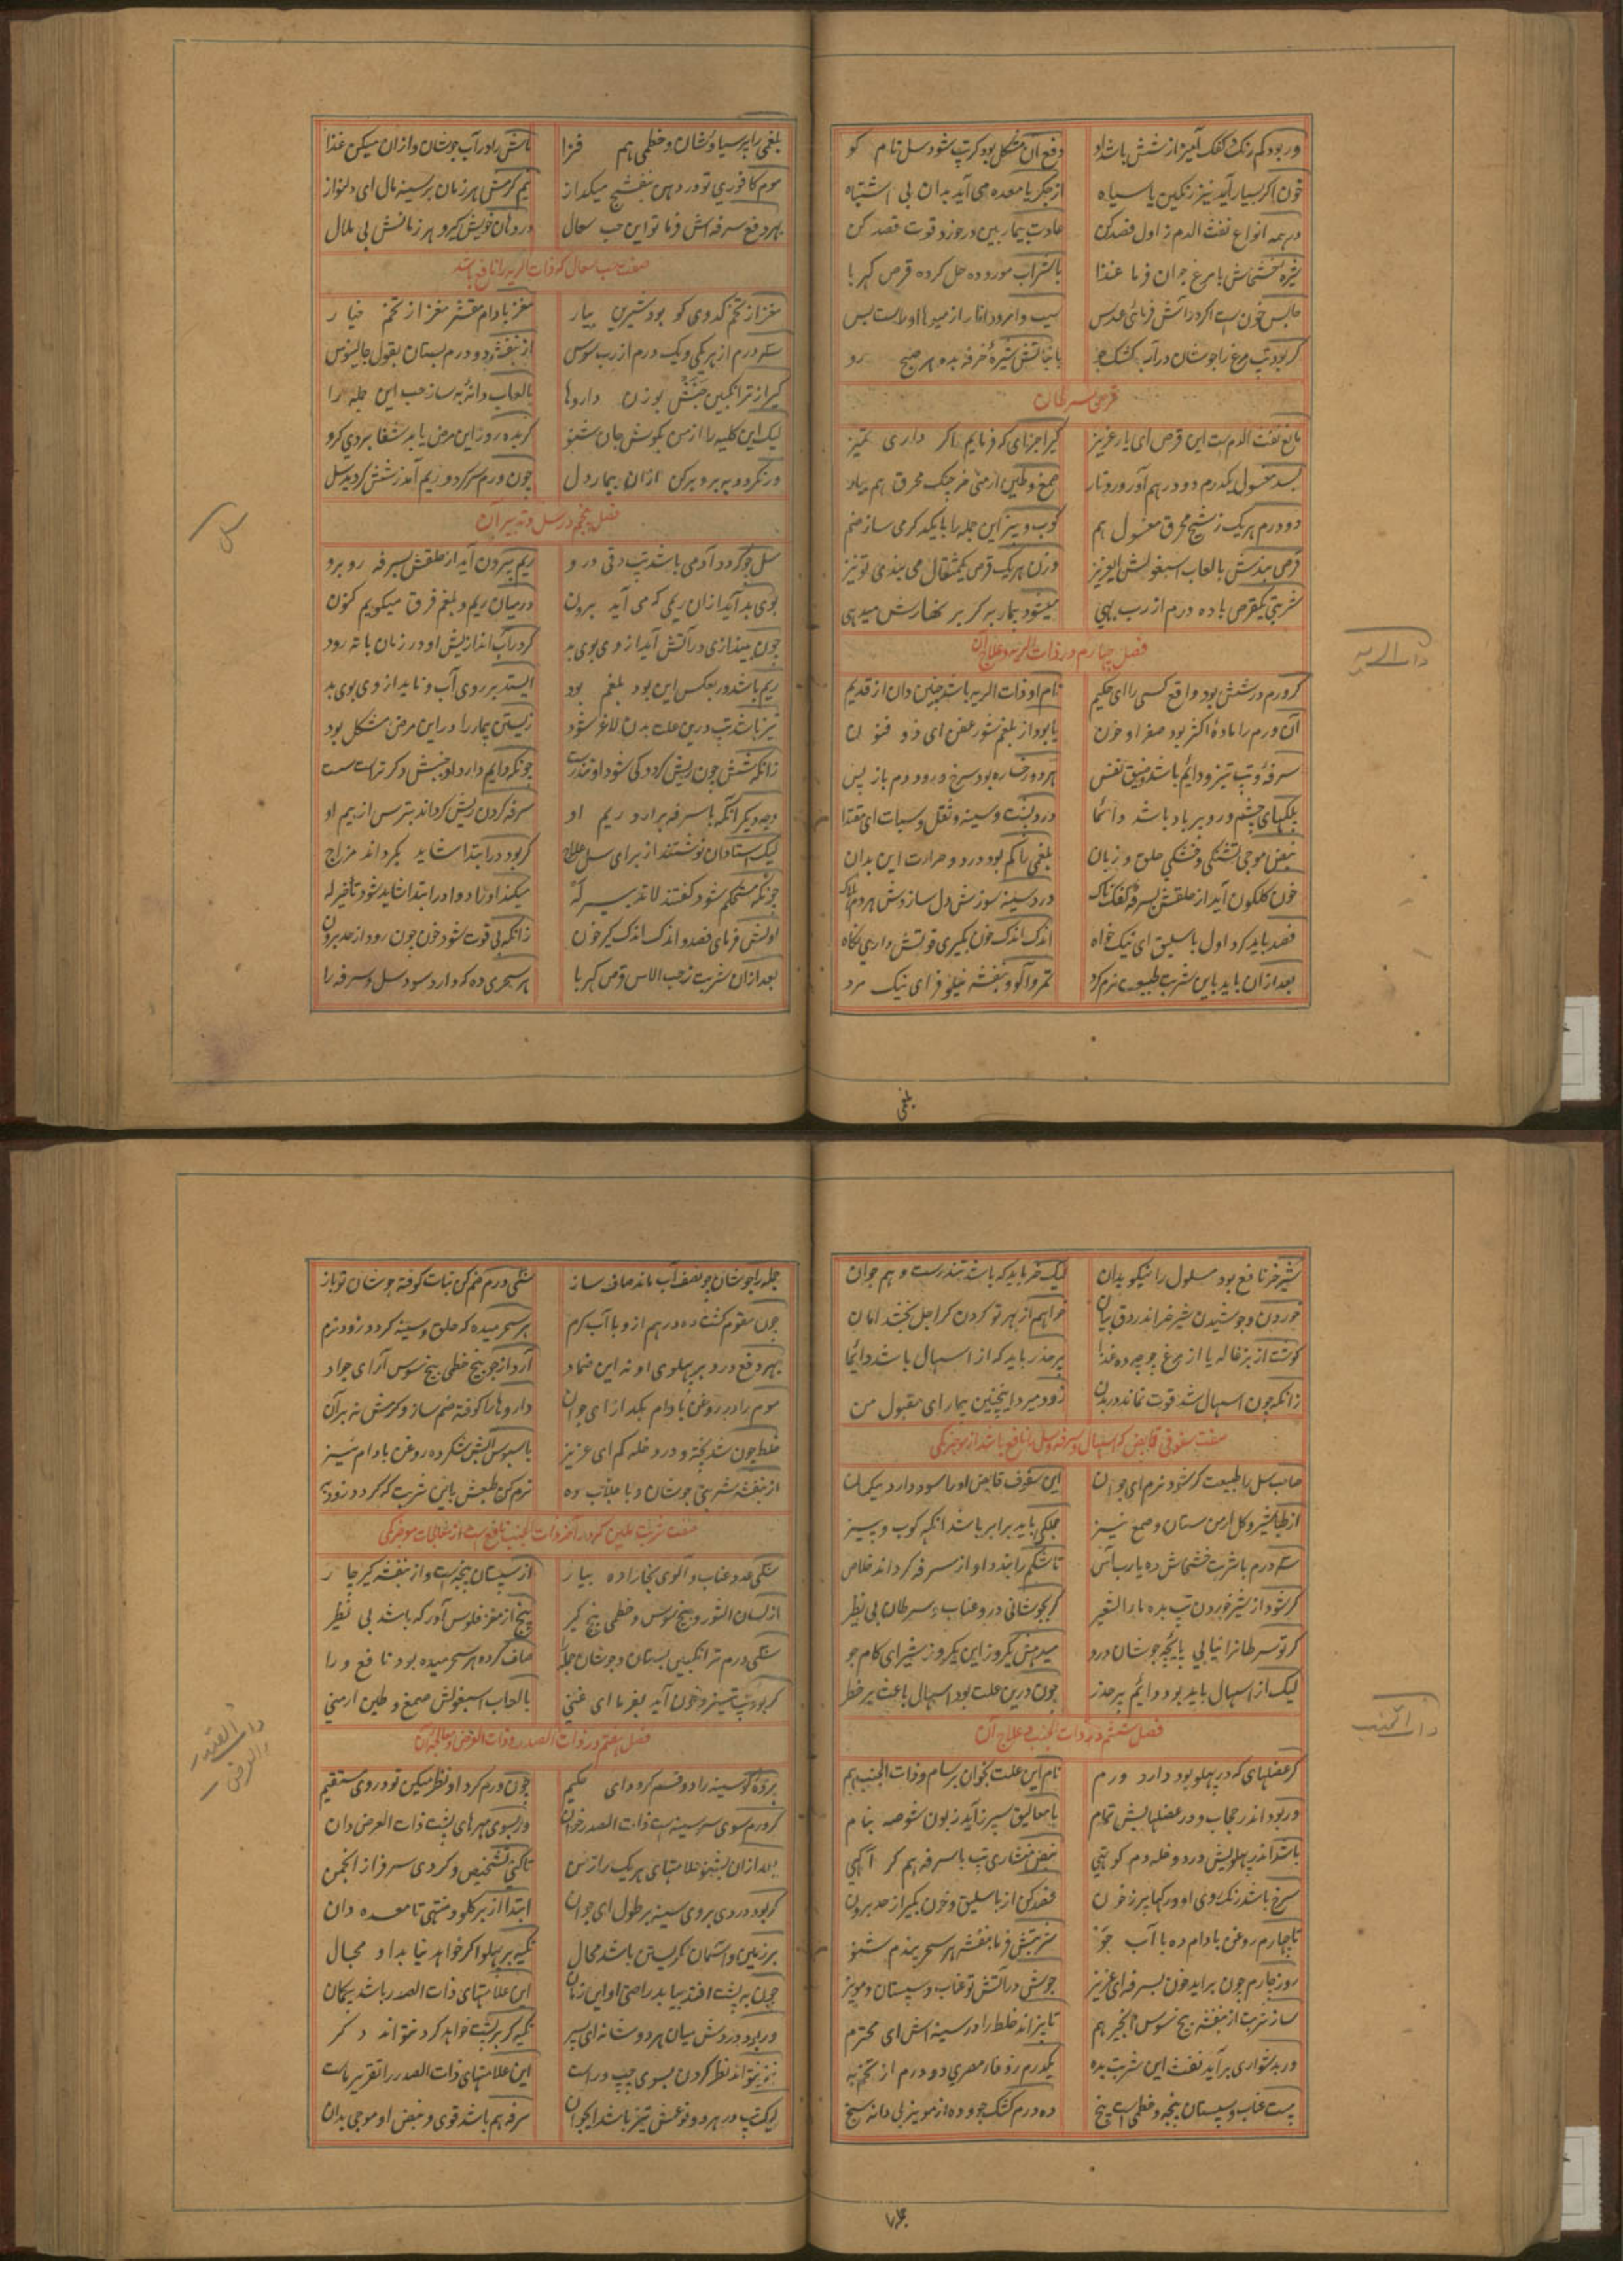 وربود کم رنگ و کفک آمیز از شش باشد او
دفع آن مشکل بود کر تپ شود سل نام کو
خون اکر بسیار آید نیز رنکین یا سیاه
از جکر یا معده می آید بدان بی اشتباه
در همه انواع نفث الدم ز اول فصد کن
عادت بیمار بین در خورد قوت فصد کن
شیره خشخاش با مرغ جوان فرما غذا
با شراب مورد ده حل کرده قرص کهربا
حابس خون ست اکر در آتش فرمائی عدس
سیب و امرود و انار از میوها اولاست بس
کر بود تب مرغ را جوشان در آب کشک جو
با نباتش شیرۀ خرفه بده هر صبح رو
قرص سرطان
مانع نفث الدم ست این قرص ای یار عزیز
کیر اجزای که فرمایم اکر داری تمیز
بسد مغسول یکدرم دو درهم آور
صمغ و طین ارمنی خرچنک محرق هم بیار
دو درم هریک ز شیح محرق مغسول هم
کوب و بیز این جمله را با یکدکر می ساز ضم
قرص بندش با لعاب اسبغولش ایعزیز
وزن هریک قرص یکمثقال می بندی تو نیز
شربتی یکقرص با ده درم از رب بهی
میشود بیمار به کر بر نهارش میدهی
فصل چهارم در ذات الریه و علاج آن
کر ورم در شش بود واقع کسی را ای حکیم
نام او ذات الریه باشد چنین دان از قدیم
آن ورم را مادۀ اکثر بود صفرا و خون
یا بود از بلغم شور عفن ای ذو فنون
سرفه و تب تیز و دائم باشد و ضیق نفس
هر دو رخساره بود سرخ و رود دم باز پس
پلکهای چشم و رو بر باد باشد دائما
درد پشت و سینه و ثقل و سبات ای مقتدا
نبض موجی تشنکی و خشکی حلق و زبان
بلغمی را کم بود درد و حرارت این بدان
خون کلکون آید از حلقش بسرفه کفکناک
درد سینه سوزش دل سازدش هر دم هلاک
فصد باید کرد اول باسلیق ای نیک خواه
اندک اندک خون بکیری قوتش داری نکاه
بعد ازان باید باین شربت طبیعت نرم کرد
تمر و آلو و بنفشه نیلوفر ای نیک مرد
ذات الریه
بلغمی
بلغمی را پرسیاوشان و خطمی هم فزا
ماش را در آب جوشان و ازان میکن غذا
موم کافوری تو در دهن بنفشج میکداز
نیم کرمش هر زمان بر سینه مال ای دلنواز
بهر دفع سرفه اش فرما تو این حب سعال
در دهان خویش کیرد هر زمانش بی ملال
صفت حب سعال که ذات الریه را نافع باشد
مغز از تخم کدوی کو بود شیرین بیار
مغز بادام مقشر مغز از تخم خیار
سه درم از هر یکی و یک درم از رب سوس
از بنفشه دو درم بستان بقول جالینوس
کیر از ترانکبین بوزن داروها
با لعاب دانۀ به ساز حب این جمله را
لیک این کلیه را از من بکوش جان شنو
کر بده روز این مرض یابد شفا بردی کرو
ور نکردد به برو بر کن ازان بیمار دل
چون ورم سر کرد و ریم آمد ز شش کردید سل
فصل پنجم در سل و تدبیر آن
سل چو کردد آدمی باشد تب دقی درو
ریم بیرون آید از حلقش بسرفه روبرو
بوی بد آید ازان ریمی که می آید برون
درمیان ریم و بلغم فرق میکویم کنون
چون بیندازی در آتش آید از وی بوی بد
کر در آب اندازیش او در زمان با ته رود
ریم باشد ور بعکس این بود بلغم بود
ایستد بر روی آب و ناید از وی بوی بد
تیز باشد تب درین علت بدن لاغر شود
زیستن بیمار را در این مرض مشکل بود
زانکه شش چون ریش کردد کی شود او تندرست
چونکه دایم دارد او جنبش دکر تر است سست
وجه دیکر آنکه با سرفه برارد ریم او
سرفه کردن ریش کرداند بترس از بیم او
لیک استادان نوشتند از برای سل علاج
کر بود در ابتدا شاید بکرداند مزاج
چونکه مستحکم شود کفتند لا تدبیر له
میکند اورا دوا در ابتدا شاید شود تاخیر له
اولش فرمای فصد و اندک اندک کیر خون
زانکه بی قوت شود خون چون رود از حد برون
بعد ازان شربت ز حب الاس و قرص کهربا
هر سحر می ده که دارد سود سل و سرفه را
سل
شیر خر نافع بود مسلول را نیکو بدان
لیک خر باید که باشد تندرست و هم جوان
خوردن و جوشیدن شیر خر اندر دق بیان
خواهم از بهر تو کردن کر اجل بخشد امان
کوشت از بزغاله یا از مرغ جوجه ده غذا
پر حذر باید که از اسهال باشد دائما
زانکه چون اسهال شد قوت نماند در بدن
زود میرد اینچنین بیمار ای مقبول من
صفت سفوفی قابض که اسهال و سرفه و سل را نافع باشد از موجز مکی
صاحب سل را طبیعت کر شود نرم ای جوان
این سفوف قابض اورا سود دارد بیکمان
از طباشیر و کل ارمن ستان و صمغ نیز
جملکی باید برابر باشد انکه کوب و بیز
سه درم با شربت خشخاش ده یا رب آس
تا شکم را بندد او از سرفه کرداند خلاص
کر شود از شیر خوردن تب بده ماء الشعیر
کر بجوشانی درو عناب و سرطان بی نظیر
کر تو سرطانرا نیابی پایچه جوشان درو
میدهش یکروز این یکروز شیر ای کام جو
لیک از اسهال باید بود دائم پر حذر
چون درین علت بود اسهال باعث بر خطر
فصل ششم در ذات الجنب و علاج آن
کر عضلهای که در پهلو بود دارد ورم
نام این علت بخوان برسام و ذات الجنب هم
ور بود اندر حجاب و در عضلهایش تمام
با معالیق سپرز آید زبون شوصه بنام
باشد اندر پهلویش درد و خله دم کوتهی
نبض منشاری تب با سرفه هم کر آکهی
سرخ باشد رنک روی او و رکها پر ز خون
فصد کن از باسلیق و خون بکیر از حد برون
تا چهارم روغن بادام ده با آب جو
شربتش فرما بنفشه هر سحر پندم شنو
روز چارم چون براید خون بسرفه ای عزیز
جوش در آتش تو عناب و سپستان و مویز
ساز شربت از بنفشه بیخ سوس انجیر هم
تا پزاند خلط را در سینه اش ای محترم
ور بدشواری برآید نفث این شربت بده
یکدرم زوفاء مصری دو درم از تخم به
بیست عناب و سپستان پنجه و خطمی ست پنج
ده درم کشک جو و ده از مویز بی دانه سنج
ذات الجنب
جمله را
جمله را جوشان چو نصف آب ماند صاف ساز
سی درم ضم کن نبات کوفته جوشان تو باز
چون مقوم کشت ده درهم ازو با آب کرم
هر سحر میده که حلق و سینه کردد زود نرم
بهر دفع درد بر پهلوی او نه این ضماد
آرد از جو بیخ خطمی بیخ سوس آر ای جواد
موم را در روغن بادام بکداز ای جوان
داروها را کوفته ضم ساز و کرمش نه بران
خلط چون شد پخته و درد و خله کم ای عزیز
با سبوس آبش شکر ده روغن بادام نیز
از بنفشه شربتی جوشان و با جلاب ده
نرم کن طبعش باین شربت که کردد زود به
صفت شربت ملین که در آخر ذات الجنب نافع ست از معالجات موجز مکی
سی عدد عناب و آلوی بخارا ده بیار
از سپستان پنجه است و از بنفشه کیر چار
از لسان الثور و بیخ سوس و خطمی پنج کیر
پنج از مغز فلوس آور که باشد بی نظیر
سی درم ترانکبین بستان و جوشان جمله
صاف کرده هر سحر میده بود نافع ورا
کر بود تب تیز و خون آید بفرما ای غنی
با لعاب اسبغولش صمغ و طین ارمنی
فصل هفتم در ذات الصدر و ذات العرض و معالجۀ آن
پردۀ کو سینه را دو قسم کرد ای حکیم
چون ورم کرد او نظر میکن تو در وی مستقیم
کر ورم سوی سر سینه ست ذات الصدر خوان
ور بسوی مهرهای پشت ذات العرض دان
بعد ازان بشنو علامتهای هریک را ز من
تا کنی تشخیص و کردی سرفراز انجمن
کر بود دردی بروی سینه بر طول ای جوان
ابتدا از برکلو و منتهی تا معده دان
بر زمین و اسمان نکریستن باشد محال
تکیه بر پهلو اکر خواهد نیابد او مجال
چون به پشت افتد بیابد راحتی او این زمان
این علامتهای ذات الصدر باشد بیکمان
ور بود دردش میان هر دو شانه ای پسر
تکیه کر بر پشت خواهد کرد نتواند دکر
نیز نتواند نظر کردن بسوی چپ و راست
این علامتهای ذات الصدر را تقریر ماست
لیک تب در هر دو نوعش تیز باشد ایجوان
سرفه هم باشد قوی و نبض او موجی بدان
ذات الصدر
والعرض